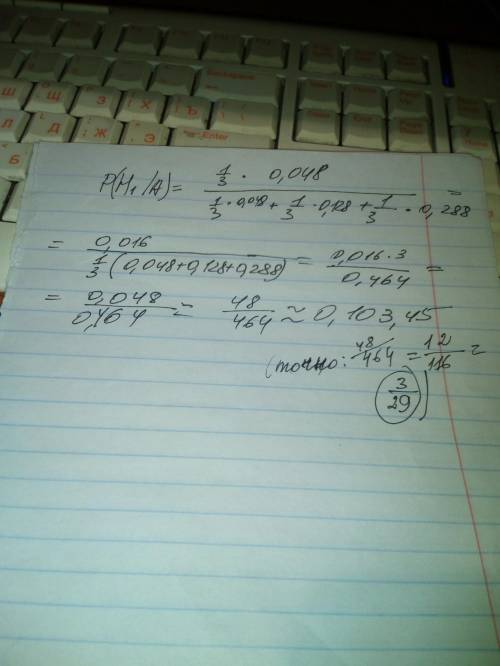 Ш Щ З Х Ъ Enter
Л Д Ж Э
Б
P(H₁/A) = (1/3 · 0,048) / (1/3 · 0,048 + 1/3 · 0,128 + 1/3 · 0,288) =
= 0,016 / (1/3 (0,048 + 0,128 + 0,288)) = (0,016 · 3) / 0,464 =
= 0,048 / 0,464 = 48/464 ≈ 0,103,45
(точно: 48/464 = 12/116 =
3/29)